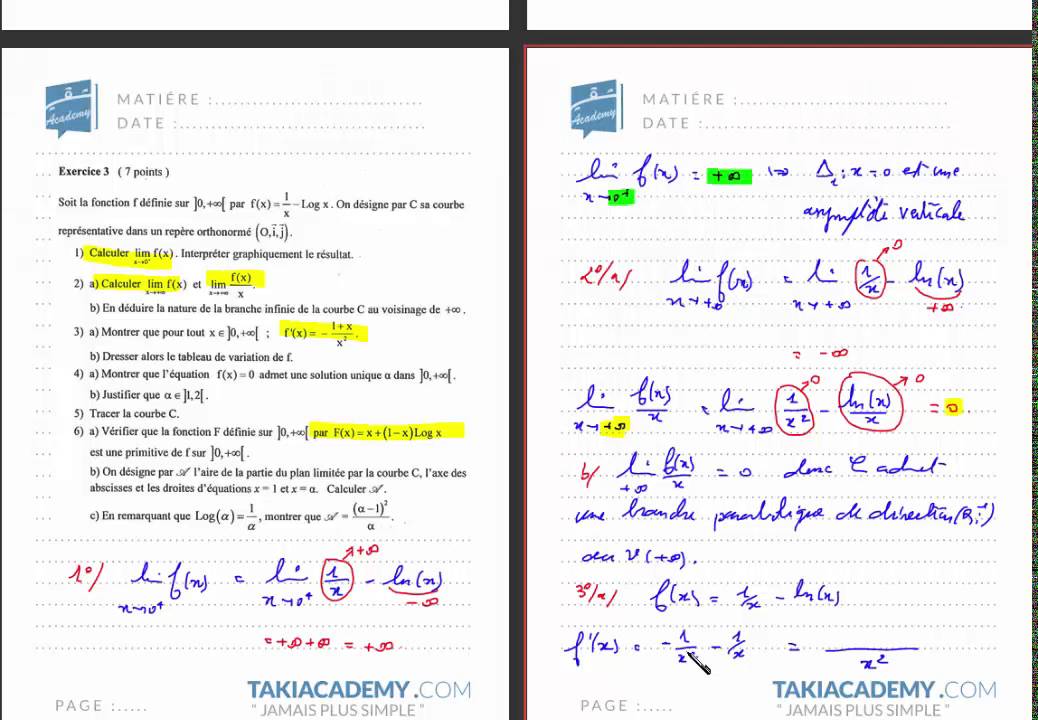 Academy
MATIÉRE :...............................................
DATE :...............................................
Exercice 3 ( 7 points )
Soit la fonction f définie sur ]0,+∞[ par f(x) = 1/x − Log x . On désigne par C sa courbe
représentative dans un repère orthonormé (O, i⃗, j⃗).
1) Calculer lim x→0⁺ f(x) . Interpréter graphiquement le résultat.
2) a) Calculer lim x→+∞ f(x) et lim x→+∞ f(x)/x .
b) En déduire la nature de la branche infinie de la courbe C au voisinage de +∞ .
3) a) Montrer que pour tout x ∈ ]0,+∞[ ; f'(x) = − (1+x)/x² .
b) Dresser alors le tableau de variation de f.
4) a) Montrer que l'équation f(x) = 0 admet une solution unique α dans ]0,+∞[ .
b) Justifier que α ∈ ]1,2[ .
5) Tracer la courbe C.
6) a) Vérifier que la fonction F définie sur ]0,+∞[ par F(x) = x + (1−x) Log x
est une primitive de f sur ]0,+∞[ .
b) On désigne par 𝒜 l'aire de la partie du plan limitée par la courbe C, l'axe des
abscisses et les droites d'équations x = 1 et x = α. Calculer 𝒜 .
c) En remarquant que Log(α) = 1/α , montrer que 𝒜 = (α−1)²/α .
1°/ lim x→0⁺ f(x) = lim x→0⁺ 1/x → +∞ − ln(x) −∞
= +∞ + ∞ = +∞
TAKIACADEMY.COM
PAGE :..... " JAMAIS PLUS SIMPLE "
Academy
MATIÉRE :...............................................
DATE :...............................................
lim x→0⁺ f(x) = +∞ ⇒ Δ : x = 0 est une
asymptôte verticale
2°/a) lim x→+∞ f(x) = lim x→+∞ 1/x → 0 − ln(x) +∞
= −∞
lim x→+∞ f(x)/x = lim x→+∞ 1/x² → 0 − ln(x)/x → 0 = 0.
b/ lim +∞ f(x)/x = 0 donc C admet
une branche parabolique de direction (O, i⃗)
au V(+∞).
3°/a/ f(x) = 1/x − ln(x)
f'(x) = − 1/x² − 1/x = /x²
TAKIACADEMY.COM
PAGE :..... " JAMAIS PLUS SIMPLE "